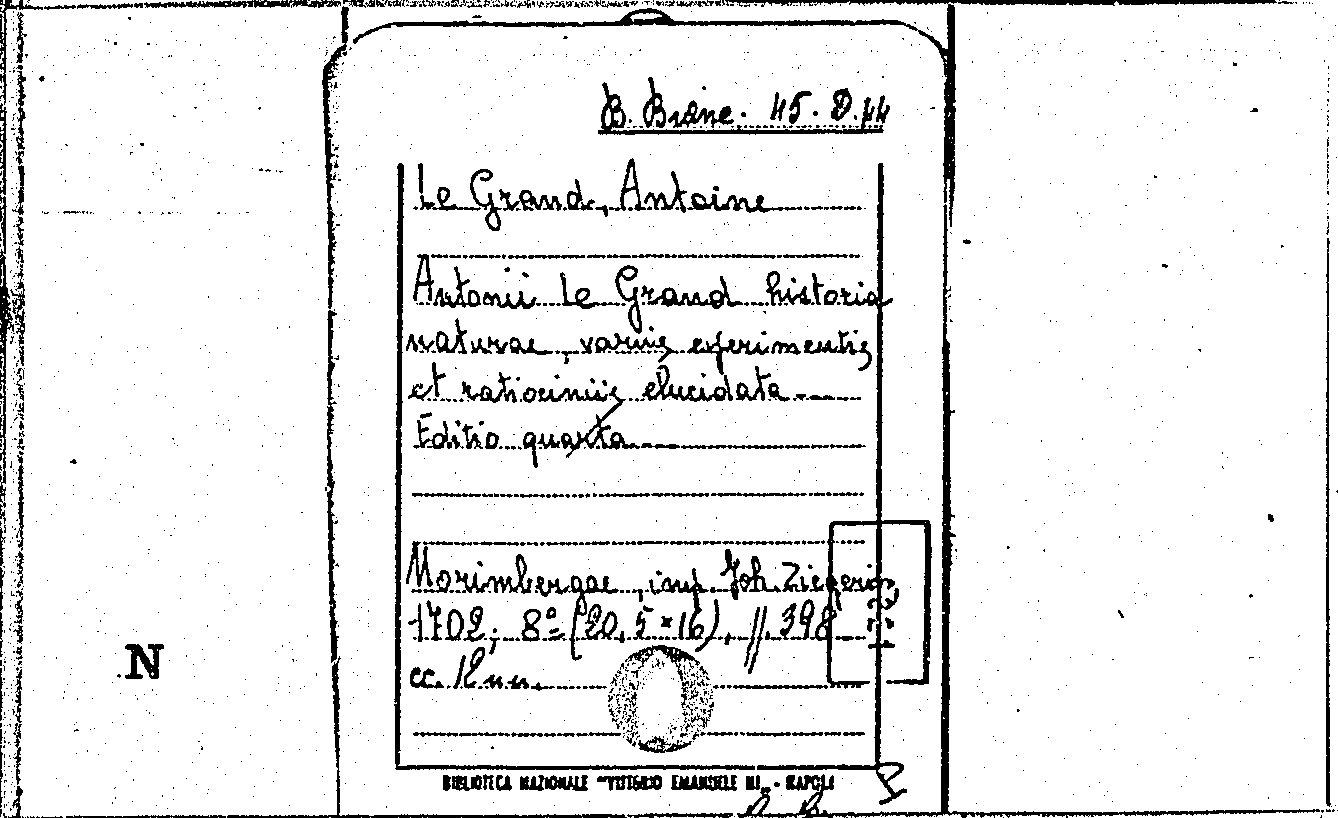 B. Branc. 45. D. 44
Le Grand, Antoine
Antonii Le Grand historia
naturae, variis experimentis
et ratiociniis elucidata
Editio quarta
Norimbergae, imp. Joh. Zieger
1702; 8º (20,5 × 16), pp. 398
cc. 12 nn.
N
BIBLIOTECA NAZIONALE "VITTORIO EMANUELE III" - NAPOLI